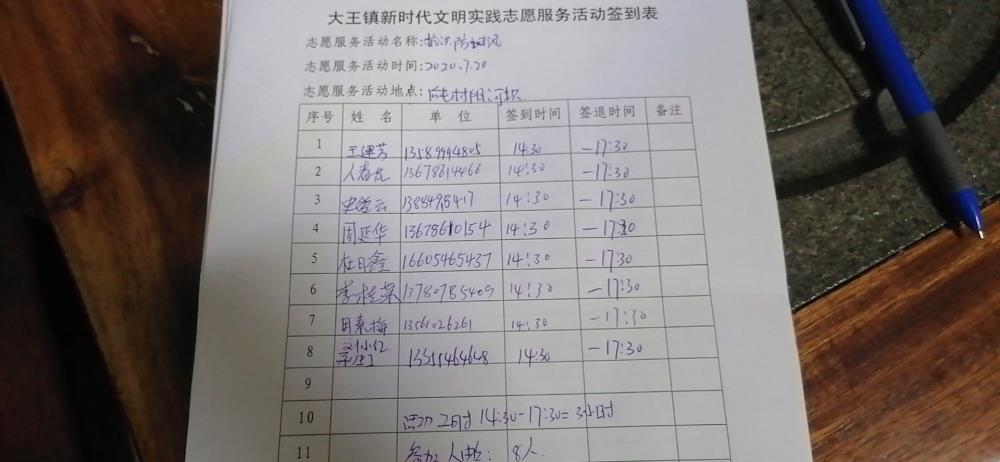 大王镇新时代文明实践志愿服务活动签到表
志愿服务活动名称:
志愿服务活动时间:2020.7.20
志愿服务活动地点:
序号 姓 名 单 位 签到时间 签退时间 备注
1 王建芳 13589944805 14:30 -17:30
2 13678614466 14:30 -17:30
3 1388498417 14:30 -17:30
4 周延华 13678610154 14:30 -17:30
5 16605465437 14:30 -17:30
6 李桂荣 17780785409 14:30 -17:30
7 田素梅 13561026261 14:30 -17:30
8 刘小红 14:30 -17:30
9
10 活动工时 14:30-17:30=3小时
11 参加人数: 8人.